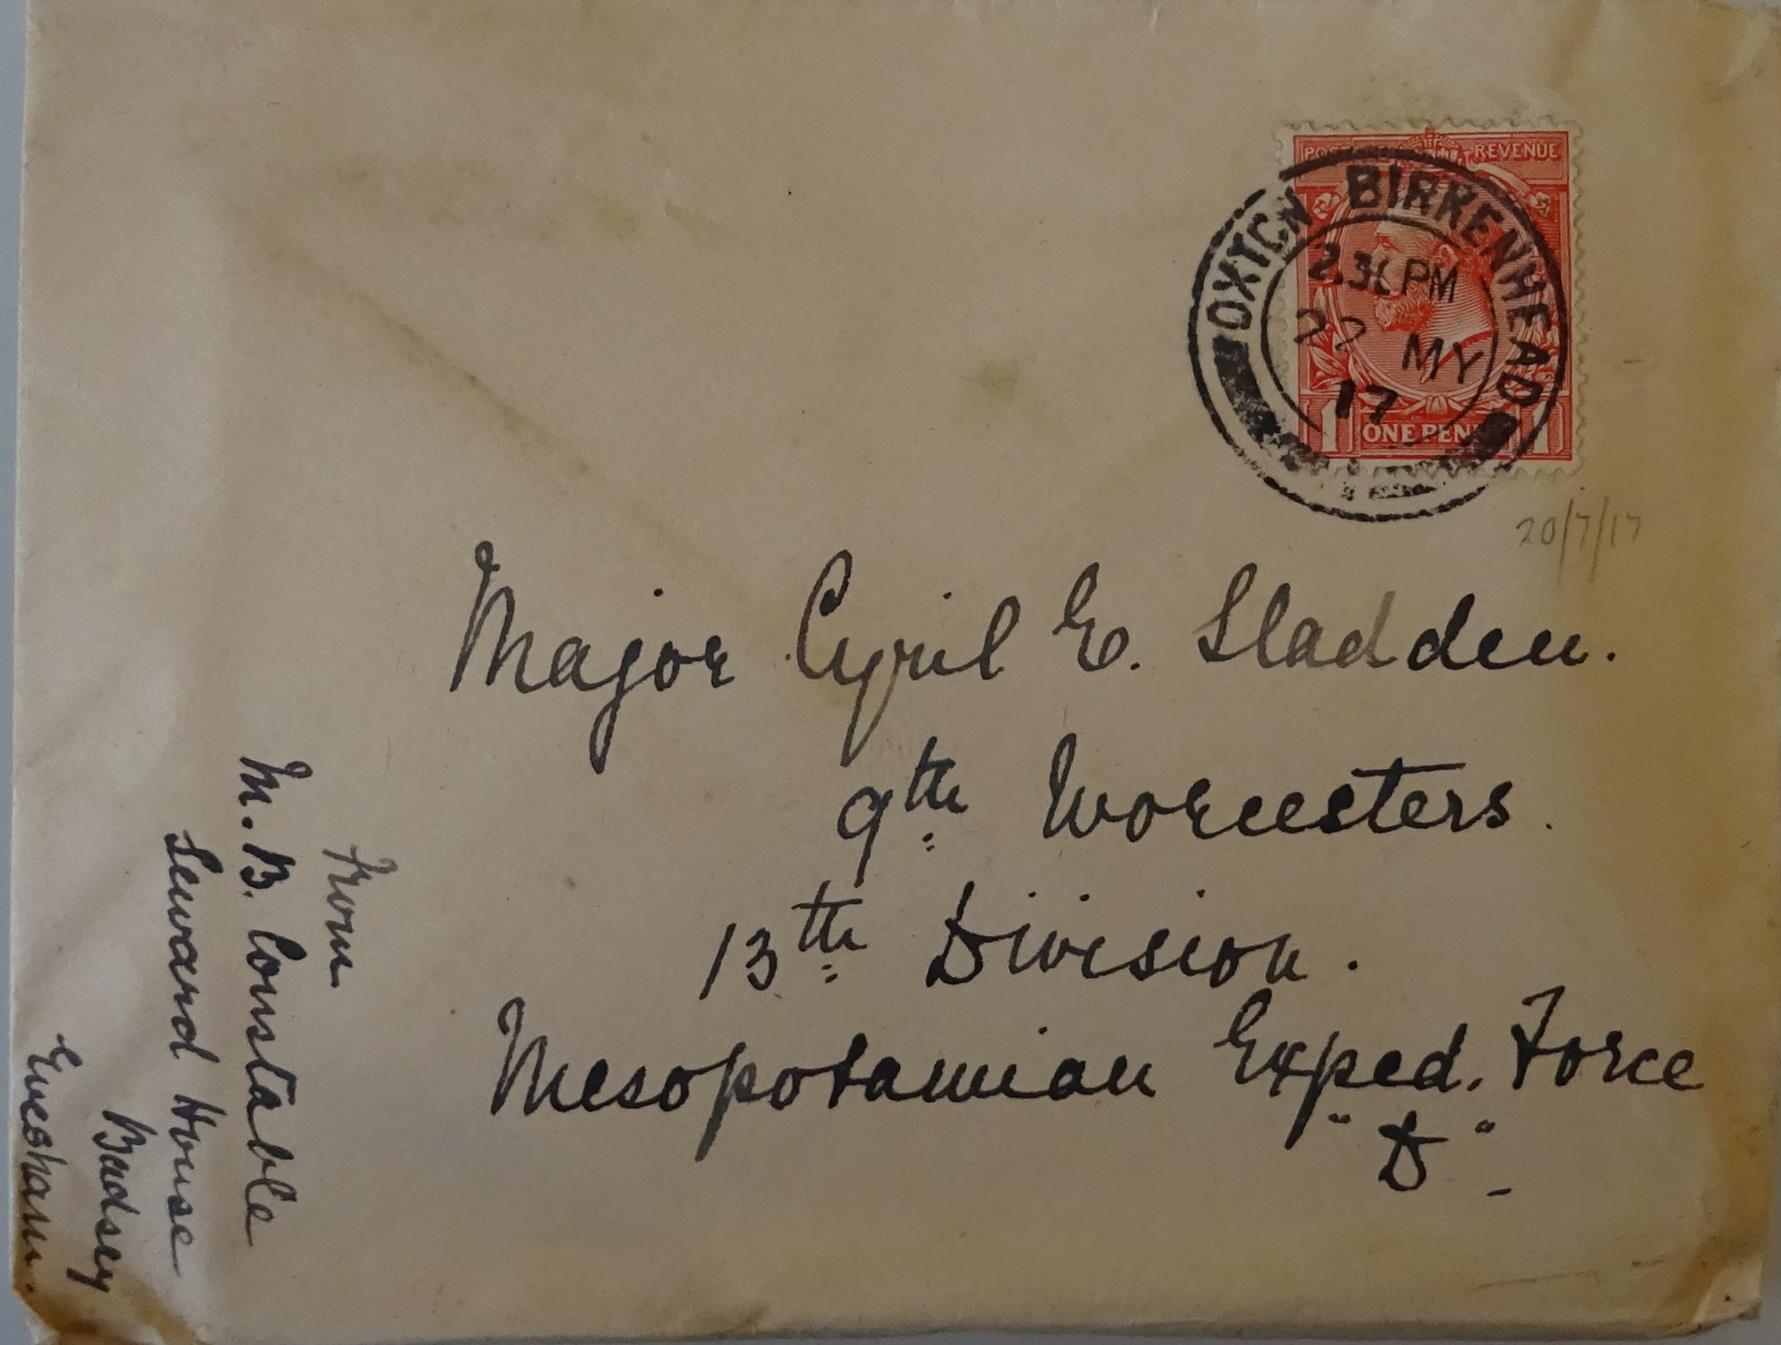 POSTAGE REVENUE
OXTON BIRKENHEAD
2.30 PM
22 MY
17
1 ONE PENNY 1
20/7/17
Major Cyril E. Sladden.
9th Worcesters.
13th Division.
Mesopotamian Exped. Force
"D"
From
M. B. Constable
Seward House
Badsey
Evesham.